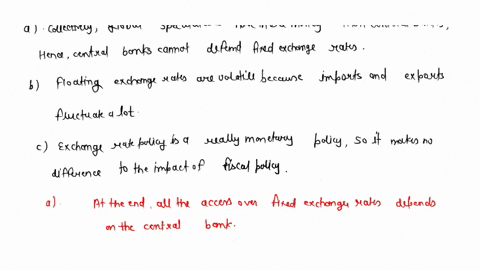 a). Collectively, global
Hence, central banks cannot defend fixed exchange rates.
b) Floating exchange rates are volatile because imports and exports
fluctuate a lot.
c) Exchange rate policy is a really monetary policy, so it makes no
difference to the impact of fiscal policy.
a). At the end, all the access over fixed exchange rates depends
on the central bank.